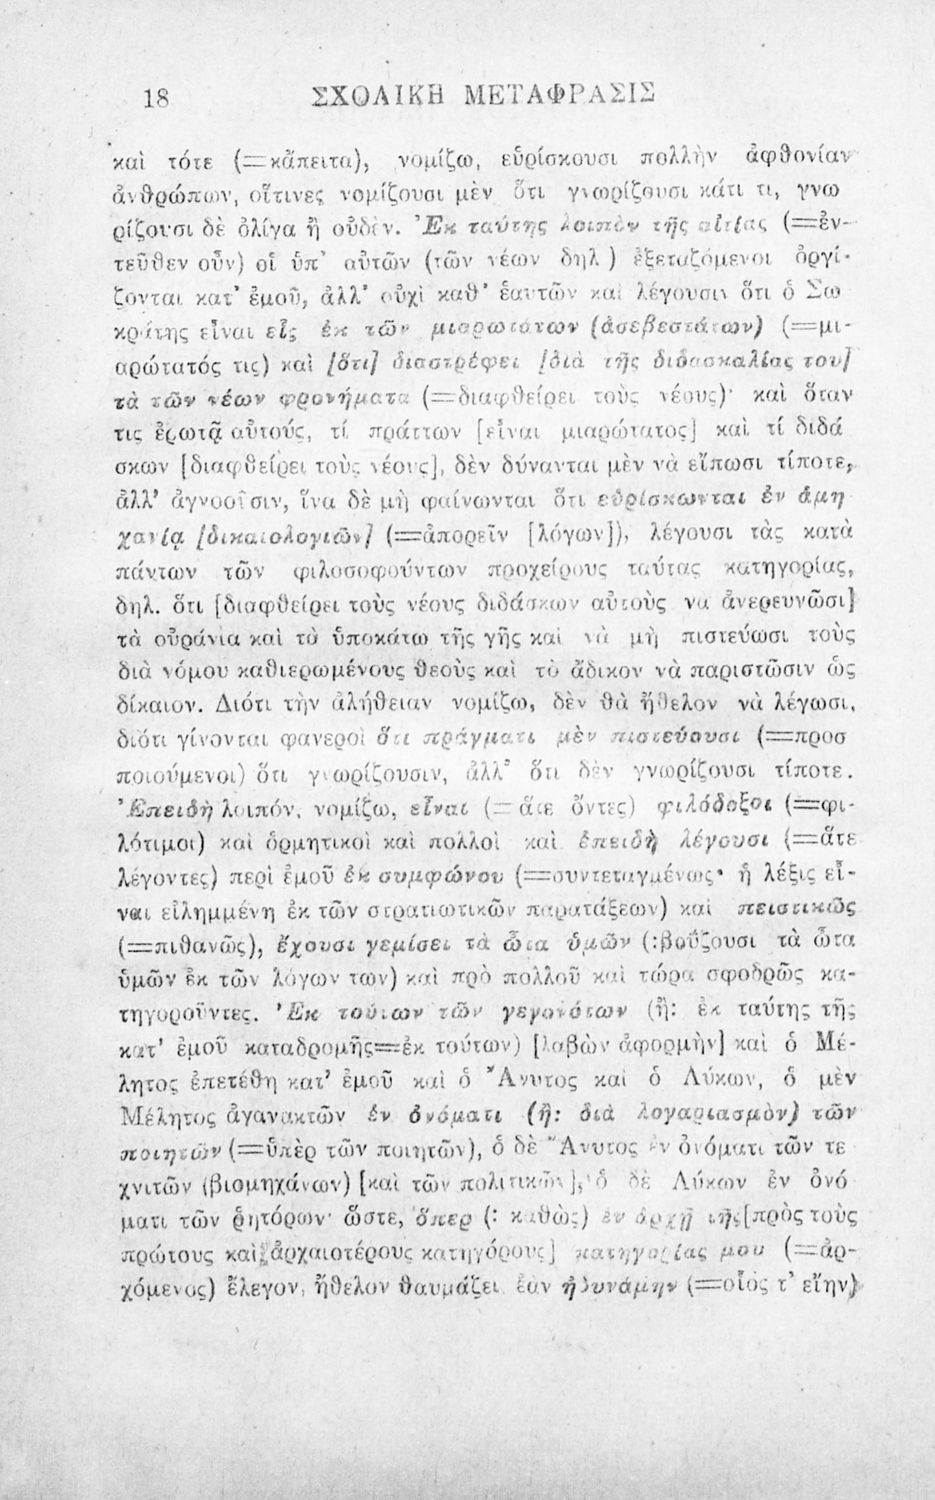 18 ΣΧΟΛΙΚΗ ΜΕΤΑΦΡΑΣΙΣ
καὶ τότε (=κἄπειτα), νομίζω, εὑρίσκουσι πολλὴν ἀφθονίαν
ἀνθρώπων, οἵτινες νομίζουσι μὲν ὅτι γνωρίζουσι κάτι τι, γνω
ρίζουσι δὲ ὀλίγα ἢ οὐδέν. Ἐκ ταύτης λοιπὸν τῆς αἰτίας (=ἐν-
τεῦθεν οὖν) οἱ ὑπ' αὐτῶν (τῶν νέων δηλ.) ἐξεταζόμενοι ὀργί-
ζονται κατ' ἐμοῦ, ἀλλ' οὐχὶ καθ' ἑαυτῶν καὶ λέγουσιν ὅτι ὁ Σω
κράτης εἶναι εἷς ἐκ τῶν μιαρωτάτων (ἀσεβεστάτων) (=μι-
αρώτατός τις) καὶ [ὅτι] διαστρέφει [διὰ τῆς διδασκαλίας του]
τὰ τῶν νέων φρονήματα (=διαφθείρει τοὺς νέους)· καὶ ὅταν
τις ἐρωτᾷ αὐτούς, τί πράττων [εἶναι μιαρώτατος] καὶ τί διδά
σκων [διαφθείρει τοὺς νέους], δὲν δύνανται μὲν νὰ εἴπωσι τίποτε,
ἀλλ' ἀγνοοῦσιν, ἵνα δὲ μὴ φαίνωνται ὅτι εὑρίσκωνται ἐν ἀμη
χανίᾳ [δικαιολογιῶν] (=ἀπορεῖν [λόγων]), λέγουσι τὰς κατὰ
πάντων τῶν φιλοσοφούντων προχείρους ταύτας κατηγορίας,
δηλ. ὅτι [διαφθείρει τοὺς νέους διδάσκων αὐτοὺς νὰ ἀνερευνῶσι]
τὰ οὐράνια καὶ τὰ ὑποκάτω τῆς γῆς καὶ νὰ μὴ πιστεύωσι τοὺς
διὰ νόμου καθιερωμένους θεοὺς καὶ τὸ ἄδικον νὰ παριστῶσιν ὡς
δίκαιον. Διότι τὴν ἀλήθειαν νομίζω, δὲν θὰ ἤθελον νὰ λέγωσι,
διότι γίνονται φανεροὶ ὅτι πράγματι μὲν πιστεύουσι (=προσ
ποιούμενοι) ὅτι γνωρίζουσιν, ἀλλ' ὅτι δὲν γνωρίζουσι τίποτε.
Ἐπειδὴ λοιπόν, νομίζω, εἶναι (=ἅτε ὄντες) φιλόδοξοι (=φι-
λότιμοι) καὶ ὁρμητικοὶ καὶ πολλοὶ καὶ ἐπειδὴ λέγουσι (=ἅτε
λέγοντες) περὶ ἐμοῦ ἐκ συμφώνου (=συντεταγμένως· ἡ λέξις εἶ-
ναι εἰλημμένη ἐκ τῶν στρατιωτικῶν παρατάξεων) καὶ πειστικῶς
(=πιθανῶς), ἔχουσι γεμίσει τὰ ὦτα ὑμῶν (:βοΐζουσι τὰ ὦτα
ὑμῶν ἐκ τῶν λόγων των) καὶ πρὸ πολλοῦ καὶ τώρα σφοδρῶς κα-
τηγοροῦντες. Ἐκ τούτων τῶν γεγονότων (ἢ: ἐκ ταύτης τῆς
κατ' ἐμοῦ καταδρομῆς=ἐκ τούτων) [λαβὼν ἀφορμὴν] καὶ ὁ Μέ-
λητος ἐπετέθη κατ' ἐμοῦ καὶ ὁ Ἄνυτος καὶ ὁ Λύκων, ὁ μὲν
Μέλητος ἀγανακτῶν ἐν ὀνόματι (ἢ: διὰ λογαριασμὸν) τῶν
ποιητῶν (=ὑπὲρ τῶν ποιητῶν), ὁ δὲ Ἄνυτος ἐν ὀνόματι τῶν τε
χνιτῶν (βιομηχάνων) [καὶ τῶν πολιτικῶν], ὁ δὲ Λύκων ἐν ὀνό
ματι τῶν ῥητόρων· ὥστε, ὅπερ (: καθὼς) ἐν ἀρχῇ τῆς [πρὸς τοὺς
πρώτους καὶ ἀρχαιοτέρους κατηγόρους] κατηγορίας μου (=ἀρ-
χόμενος) ἔλεγον, ἤθελον θαυμάζει ἐὰν ἠδυνάμην (=οἷός τ' εἴην)